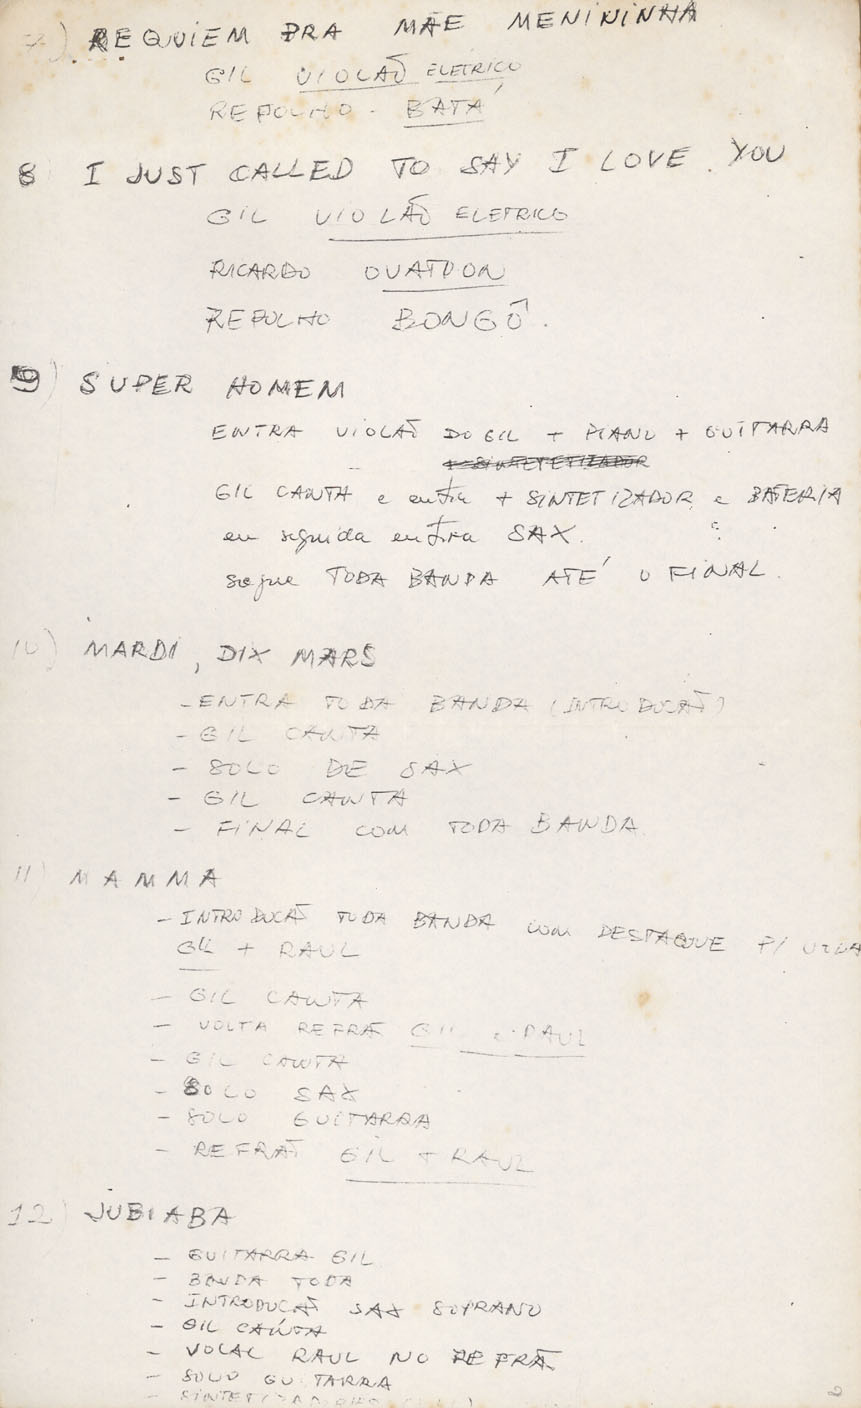 7) REQUIEM PRA MÃE MENININHA
GIL VIOLÃO ELETRICO
REPOLHO - BATÁ
8 I JUST CALLED TO SAY I LOVE YOU
GIL VIOLÃO ELETRICO
RICARDO OVATION
REPOLHO BONGÔ.
9) SUPER HOMEM
ENTRA VIOLÃO DO GIL + PIANO + GUITARRA
GIL CANTA e entra + SINTETIZADOR e BATERIA
em seguida entra SAX.
segue TODA BANDA ATÉ O FINAL.
10) MARDI, DIX MARS
- ENTRA TODA BANDA (INTRODUCÃO)
- GIL CANTA
- SOLO DE SAX
- GIL CANTA
- FINAL COM TODA BANDA
11) MAMMA
- INTRODUCÃO TODA BANDA com DESTAQUE P/
GIL + RAUL
- GIL CANTA
- VOLTA REFRÃO GIL e RAUL
- GIL CANTA
- SOLO SAX
- SOLO GUITARRA
- REFRÃO GIL + RAUL
12) JUBIABA
- GUITARRA GIL
- BANDA TODA
- INTRODUCÃO SAX SOPRANO
- GIL CANTA
- VOCAL RAUL NO REFRÃO
- SOLO GUITARRA
2